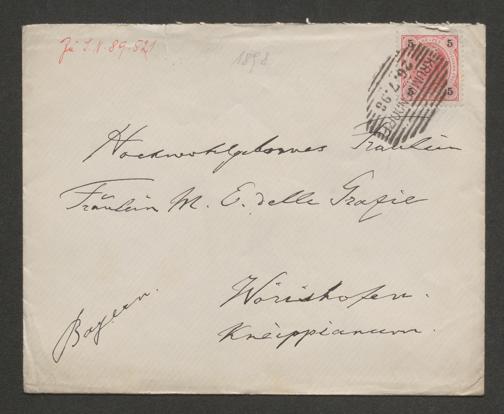 Zu I.N. 89.521
1898
5 5
5 5
26.7.98
KRUMM NUSSBAUM
Hochwohlgebornes Fräulein
Fräulein M. E. delle Grazie
Wörishofen.
Kneippianum.
Bayern.